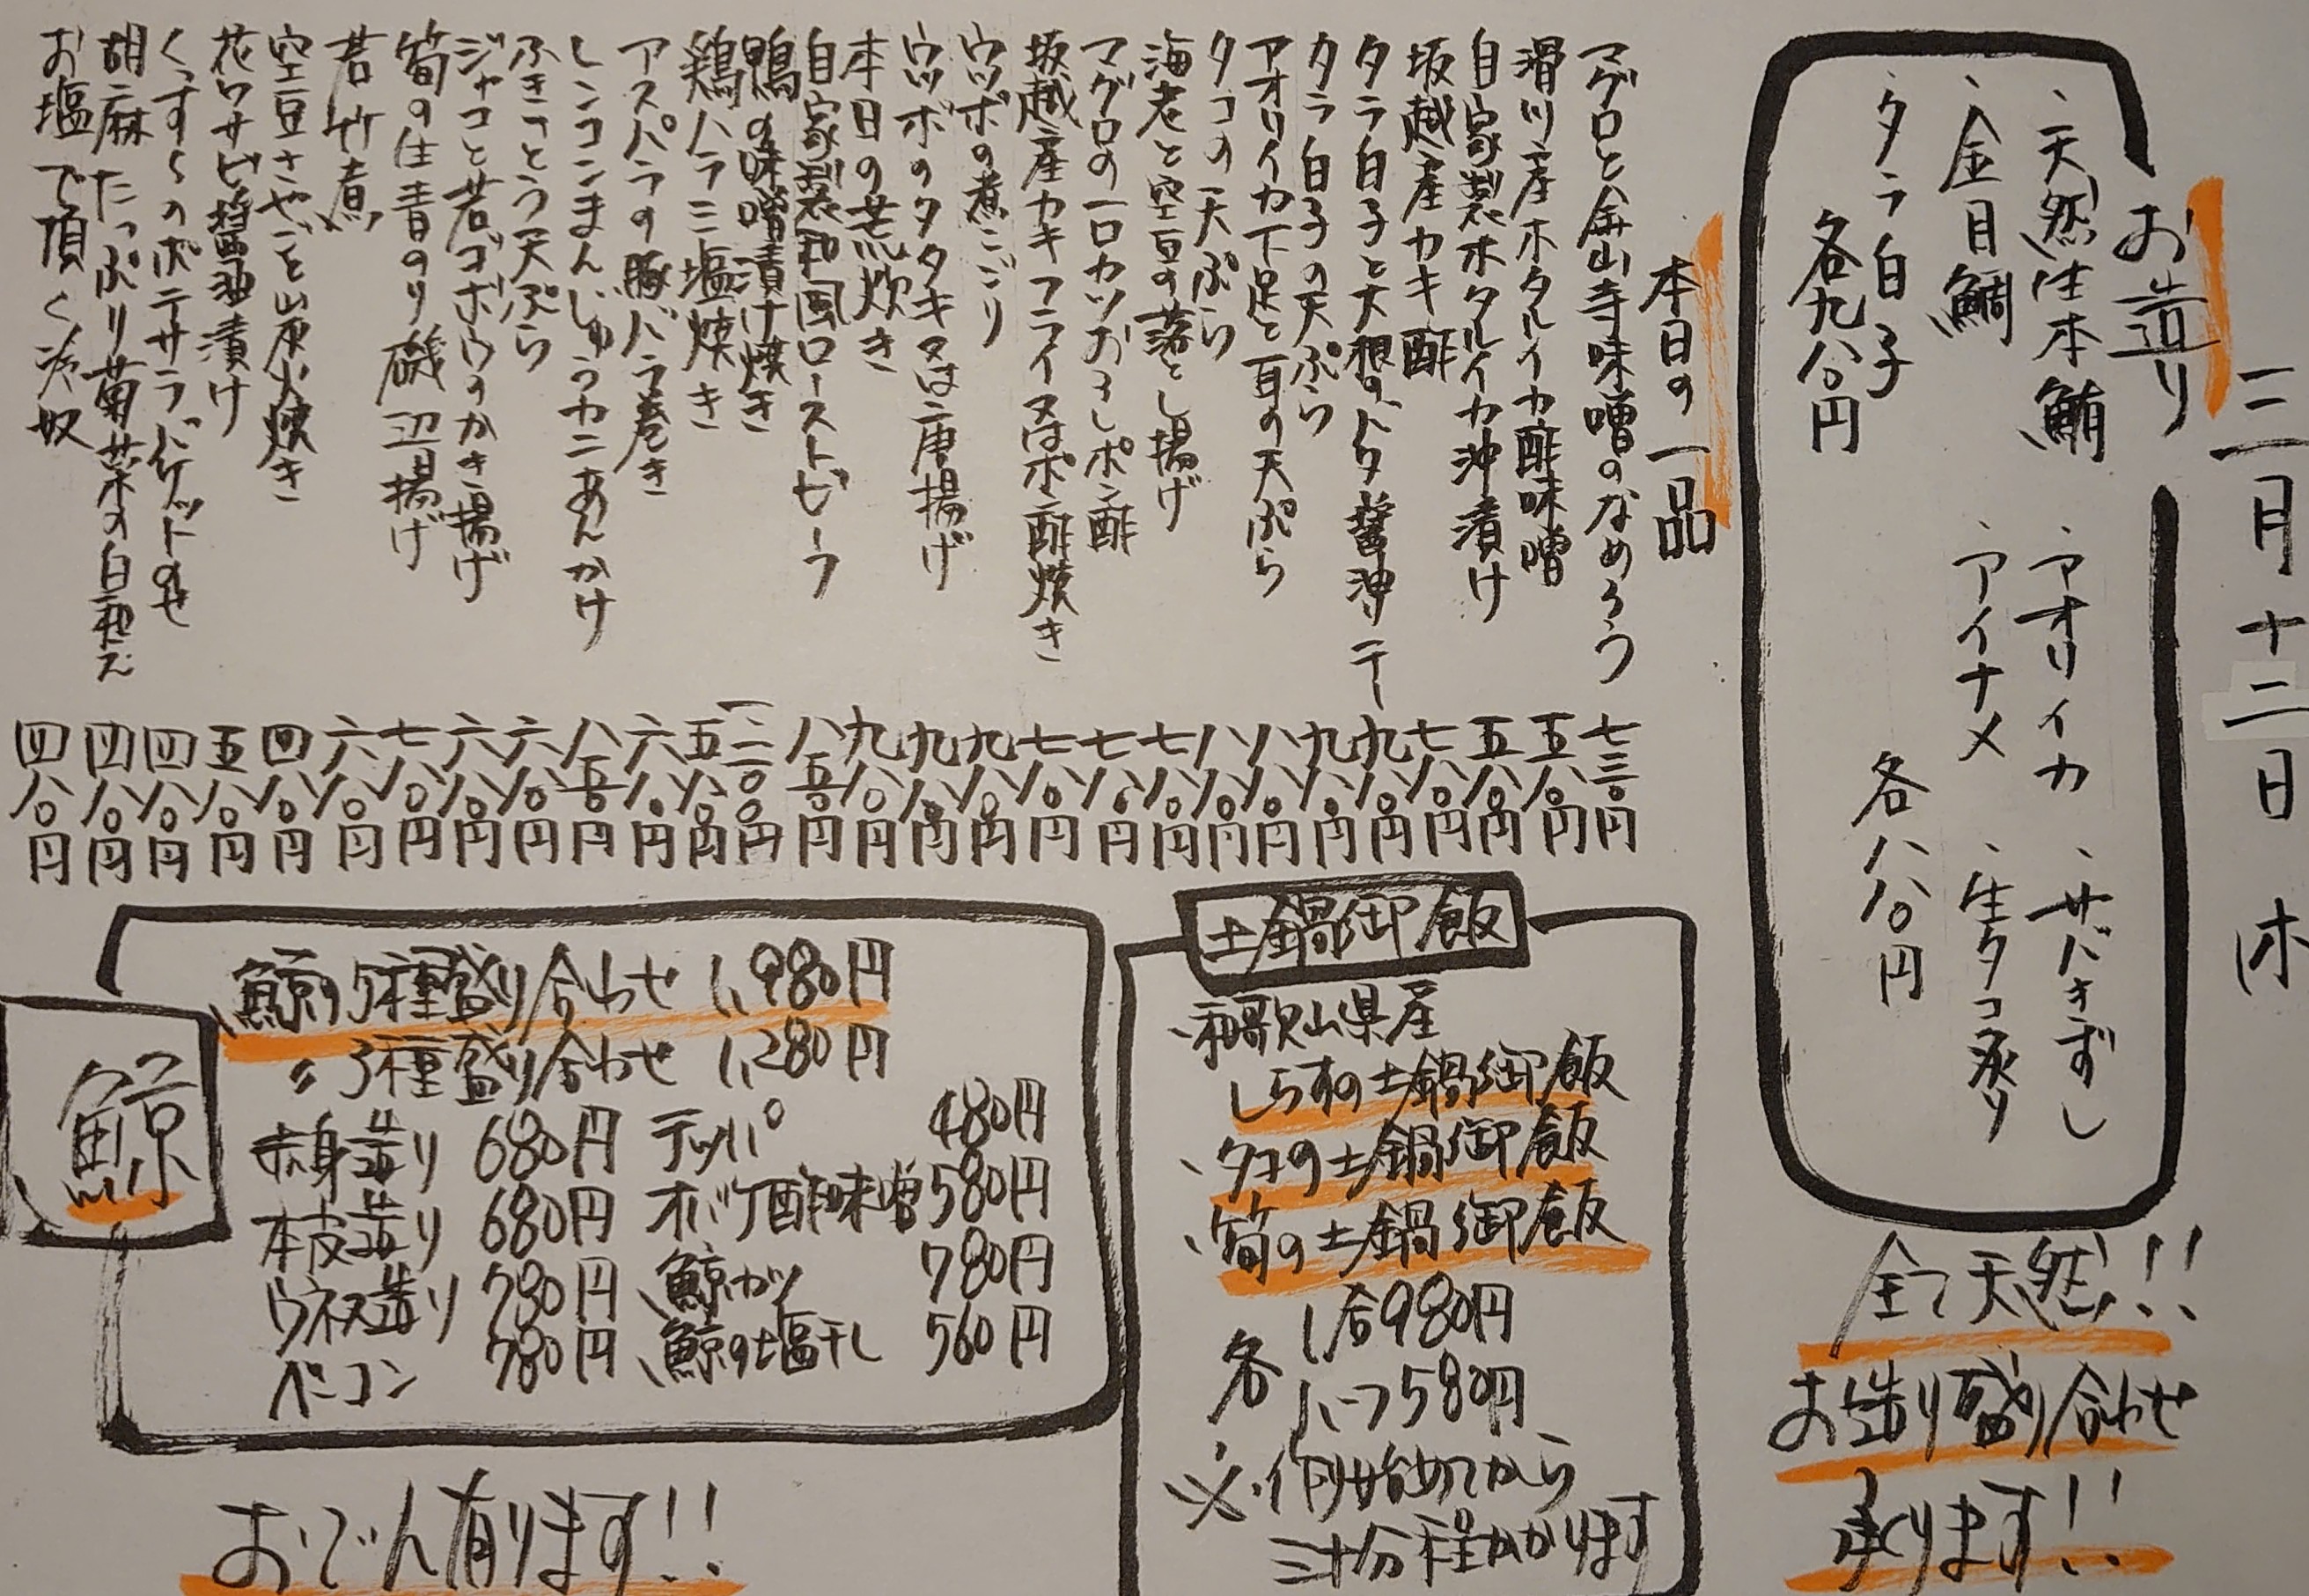 三月十二日 木
お造り
、天然生本鮪 、アオリイカ 、サバきずし
、金目鯛 、アイナメ 、生タコ炙り
、タラ白子
各九八〇円 各八八〇円
全て天然!!
お造り盛り合わせ
承ります!!
本日の一品
マグロと金山寺味噌のなめろう 七三〇円
滑川産ホタルイカ酢味噌 五八〇円
自家製ホタルイカ沖漬け 五八〇円
坂越産カキ酢 七八〇円
タラ白子と大根のバタ醤油ソテー 九八〇円
タラ白子の天ぷら 九八〇円
アオリイカ下足と耳の天ぷら 八八〇円
タコの天ぷら 八八〇円
海老と空豆の落とし揚げ 七八〇円
マグロの一口カツおろしポン酢 七八〇円
坂越産カキフライ又はポン酢焼き 七八〇円
ウツボの煮こごり 九八〇円
ウツボのタタキ又は唐揚げ 九八〇円
本日の荒炊き 九八〇円
自家製和風ローストビーフ 八五〇円
鴨の味噌漬け焼き 一、二〇〇円
鶏ハラミ塩焼き 五八〇円
アスパラの豚バラ巻き 六八〇円
レンコンまんじゅうカニあんかけ 八五〇円
ふきのとう天ぷら 六八〇円
ジャコと若ゴボウのかき揚げ 六八〇円
筍の生青のり磯辺揚げ 七八〇円
若竹煮 六八〇円
空豆さやごと炭火焼き 四八〇円
花ワサビ醤油漬け 五八〇円
くずしのポテサラバゲットのせ 四八〇円
胡麻たっぷり菊菜の白和え 四八〇円
お塩で頂く冷奴 四八〇円
土鍋御飯
、和歌山県産
しらすの土鍋御飯
、タコの土鍋御飯
、筍の土鍋御飯
各 1合980円
ハーフ580円
※作り始めてから
三十分程かかります
鯨
鯨の5種盛り合わせ 1,980円
〃 3種盛り合わせ 1,280円
赤身造り 680円 テッパ 480円
本皮造り 680円 オバケ酢味噌 580円
ウネス造り 780円 鯨カツ 780円
ベーコン 780円 鯨の塩干し 560円
おでん有ります!!